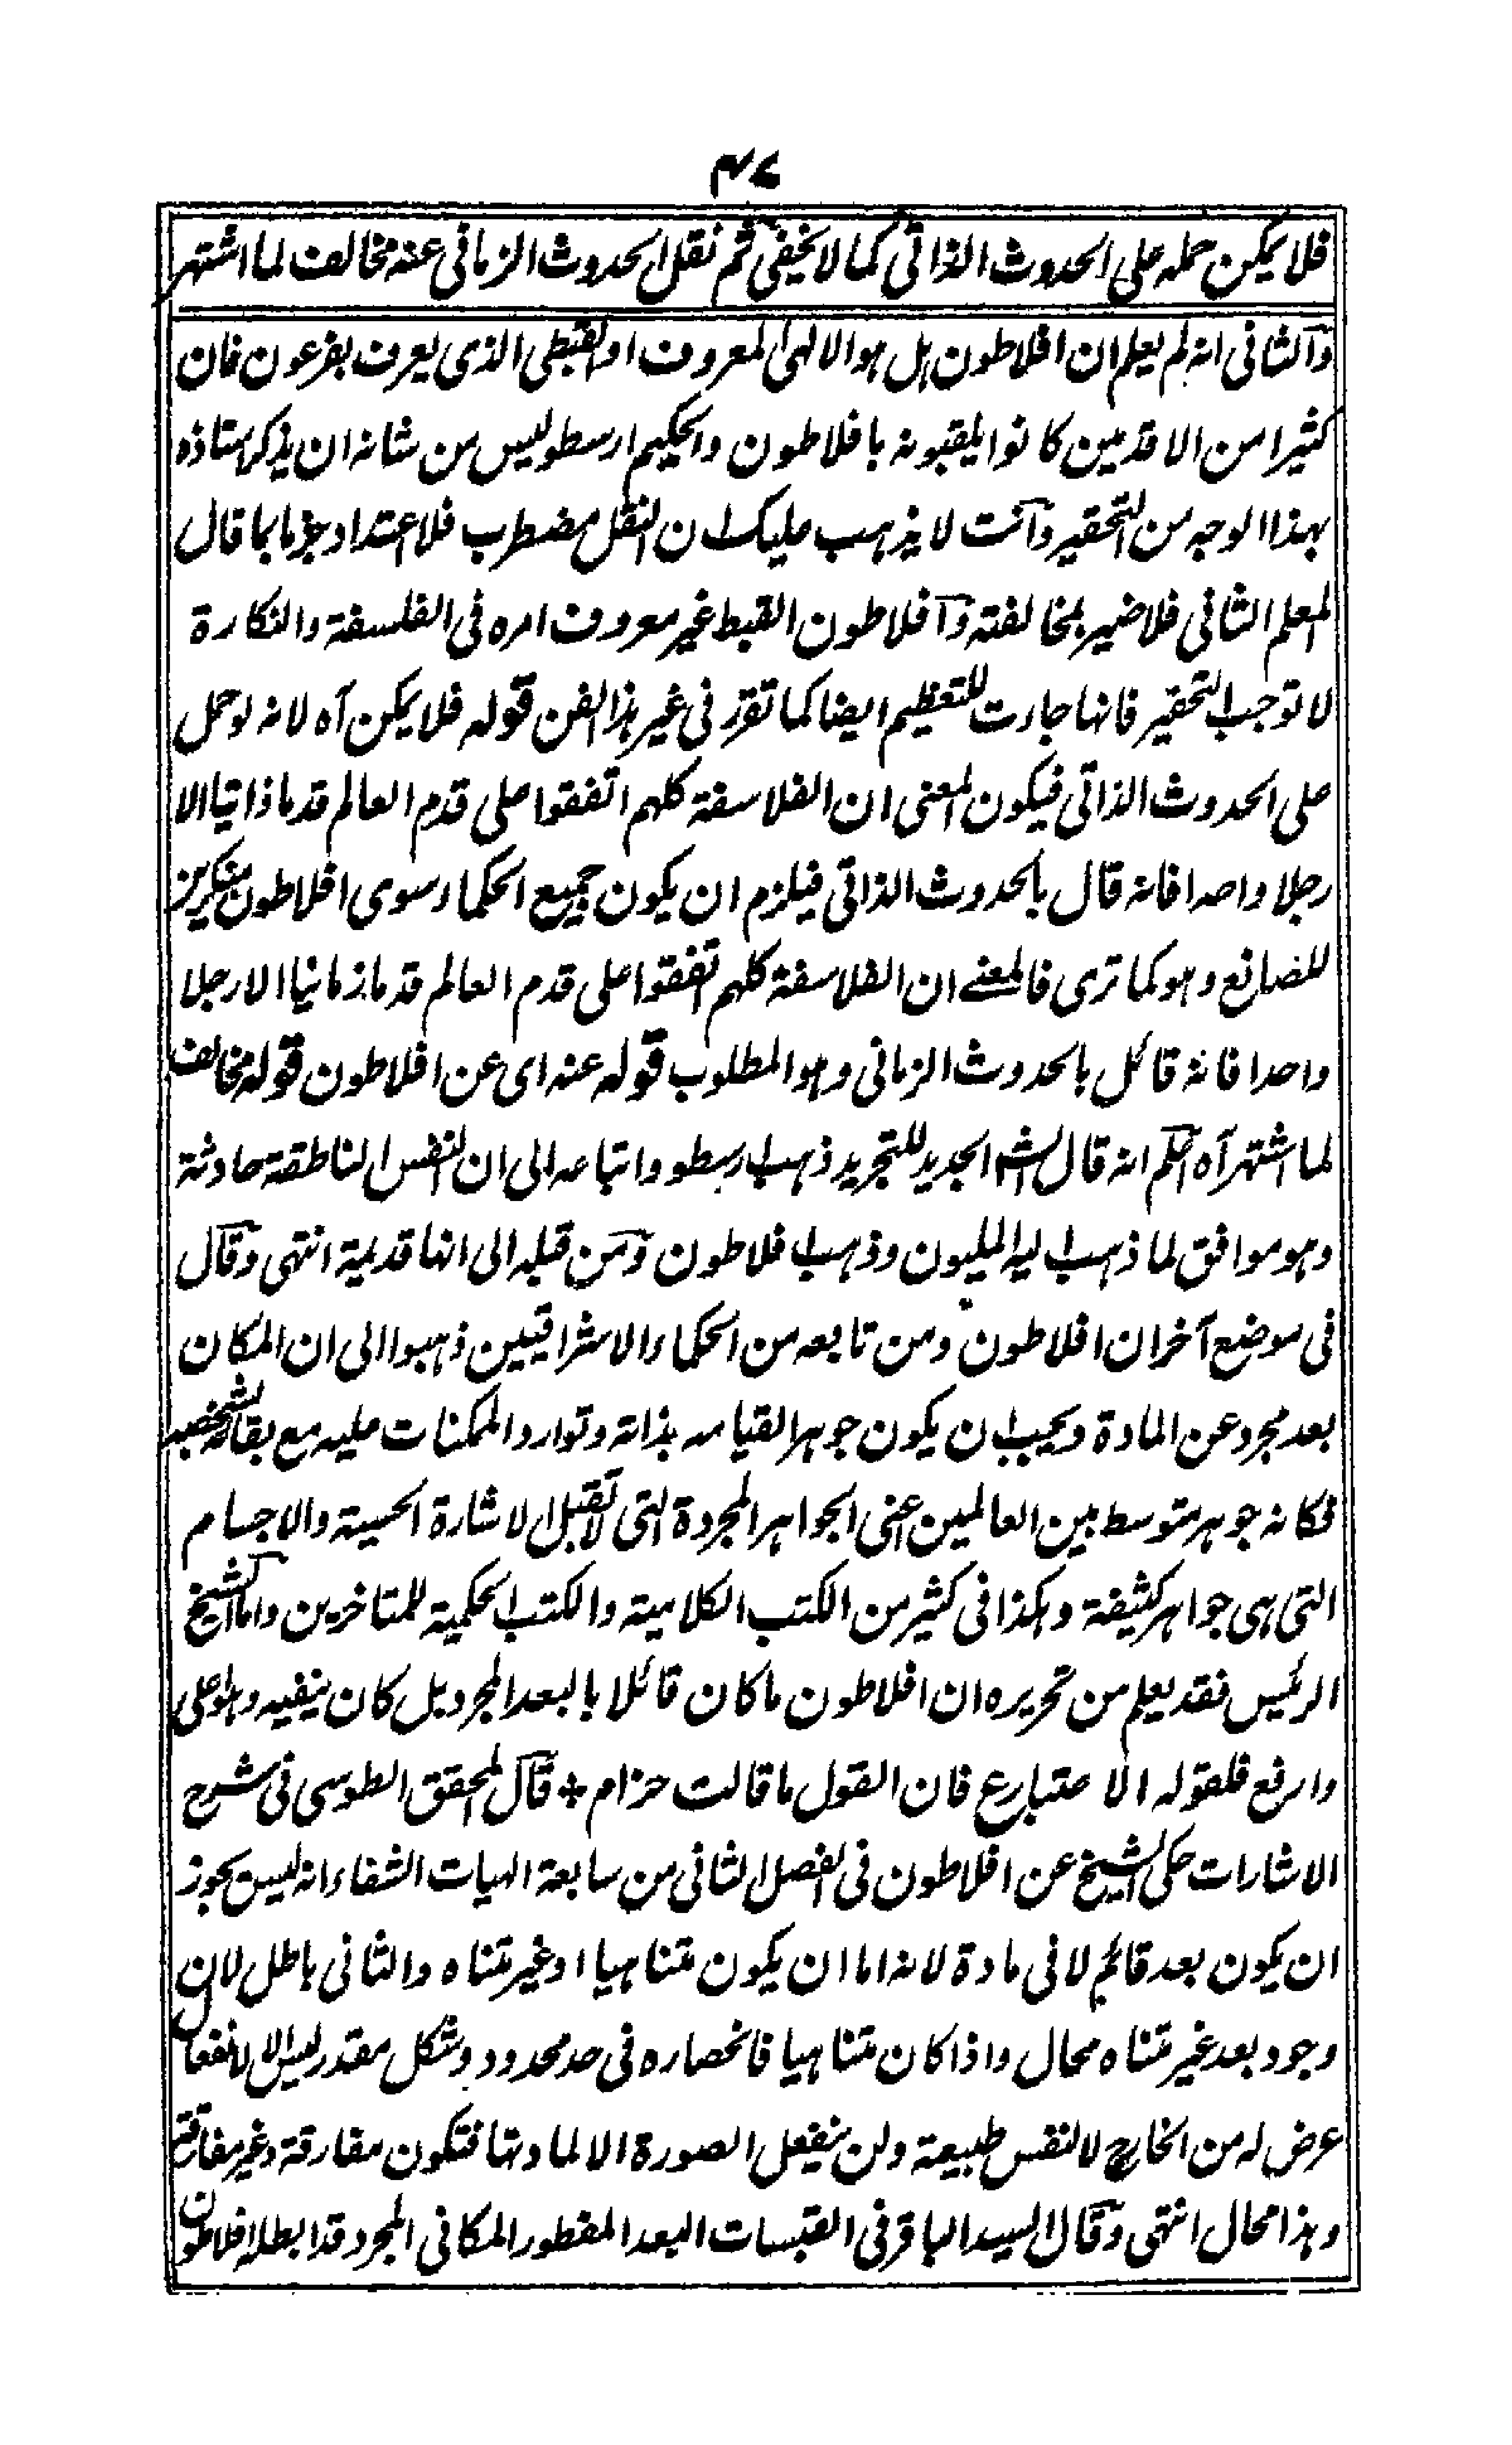 ۴۷
فلا يمكن حمله على الحدوث الذاتى كما لا يخفى ثم نقل الحدوث الزمانى عنه مخالف لما اشتهر
والثانى انه لم يعلم ان افلاطون هل هو الالهى المعروف او القبطى الذى يعرف بفرعون فان
كثيرا من الاقدمين كانوا يلقبونه بافلاطون والحكيم ارسطو ليس من شانه ان يذكر استاذه
بهذا الوجه من التحقير وانت لا يذهب عليك ان النقل مضطرب فلا اعتداد جزما بما قال
المعلم الثانى فلا ضير بمخالفته وافلاطون القبط غير معروف امره فى الفلسفة والنكارة
لا توجب التحقير فانها جاءت للتعظيم ايضا كما تقرر فى غير هذا الفن قوله فلا يمكن آه لانه لو حمل
على الحدوث الذاتى فيكون المعنى ان الفلاسفة كلهم اتفقوا على قدم العالم قدما ذاتيا الا
رجلا واحدا فانه قال بالحدوث الذاتى فيلزم ان يكون جميع الحكماء سوى افلاطون منكرين
للصانع وهو كما ترى فالمعنے ان الفلاسفة كلهم اتفقوا على قدم العالم قدما زمانيا الا رجلا
واحدا فانه قائل بالحدوث الزمانى وهو المطلوب قوله عنه اى عن افلاطون قوله مخالف
لما اشتهر آه اعلم انه قال الشه الجديد للتجريد ذهب ارسطو واتباعه الى ان النفس الناطقة حادثة
وهو موافق لما ذهب اليه المليون وذهب افلاطون ومن قبله الى انها قديمة انتهى وقال
فى موضع آخر ان افلاطون ومن تابعه من الحكماء الاشراقيين ذهبوا الى ان المكان
بعد مجرد عن المادة ويجب ان يكون جوهرا لقيامه بذاته وتوارد الممكنات عليه مع بقائه بشخصه
فكانه جوهر متوسط بين العالمين اعنى الجواهر المجردة التى لا تقبل الاشارة الحسية والاجسام
التى هى جواهر كثيفة وهكذا فى كثير من الكتب الكلامية والكتب الحكمية للمتاخرين واما الشيخ
الرئيس فقد يعلم من تحريره ان افلاطون ما كان قائلا بالبعد المجرد بل كان ينفيه وهو اعلى
وارفع فلقوله الاعتبار ع فان القول ما قالت حزام * قال المحقق الطوسى فى شرح
الاشارات حكى الشيخ عن افلاطون فى الفصل الثانى من سابعة الهيات الشفاء انه ليس يجوز
ان يكون بعد قائم لا فى مادة لانه اما ان يكون متناهيا او غير متناه والثانى باطل لان
وجود بعد غير متناه محال واذا كان متناهيا فانحصاره فى حد محدود وشكل مقدر ليس الا لانفعال
عرض له من الخارج لا لنفس طبيعة ولن ينفعل الصورة الا لمادتها فتكون مفارقة وغير مفارقة
وهذا محال انتهى وقال السيد الباقر فى القبسات البعد المفطور المكانى المجرد قد ابطله افلاطون